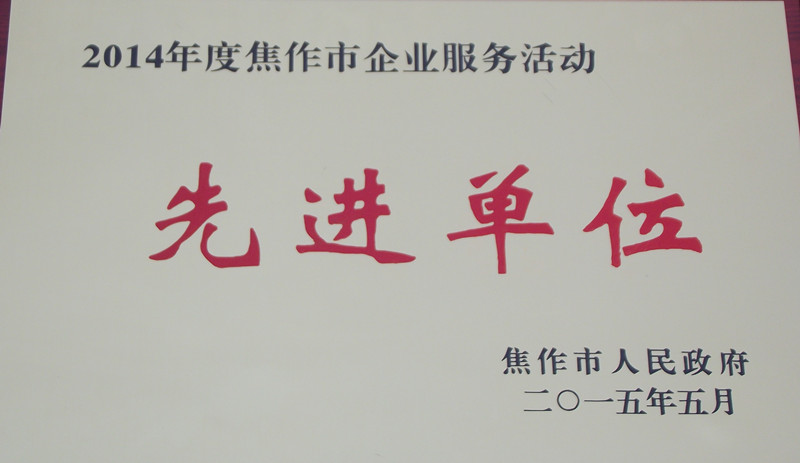 2014年度焦作市企业服务活动
先进单位
焦作市人民政府
二〇一五年五月